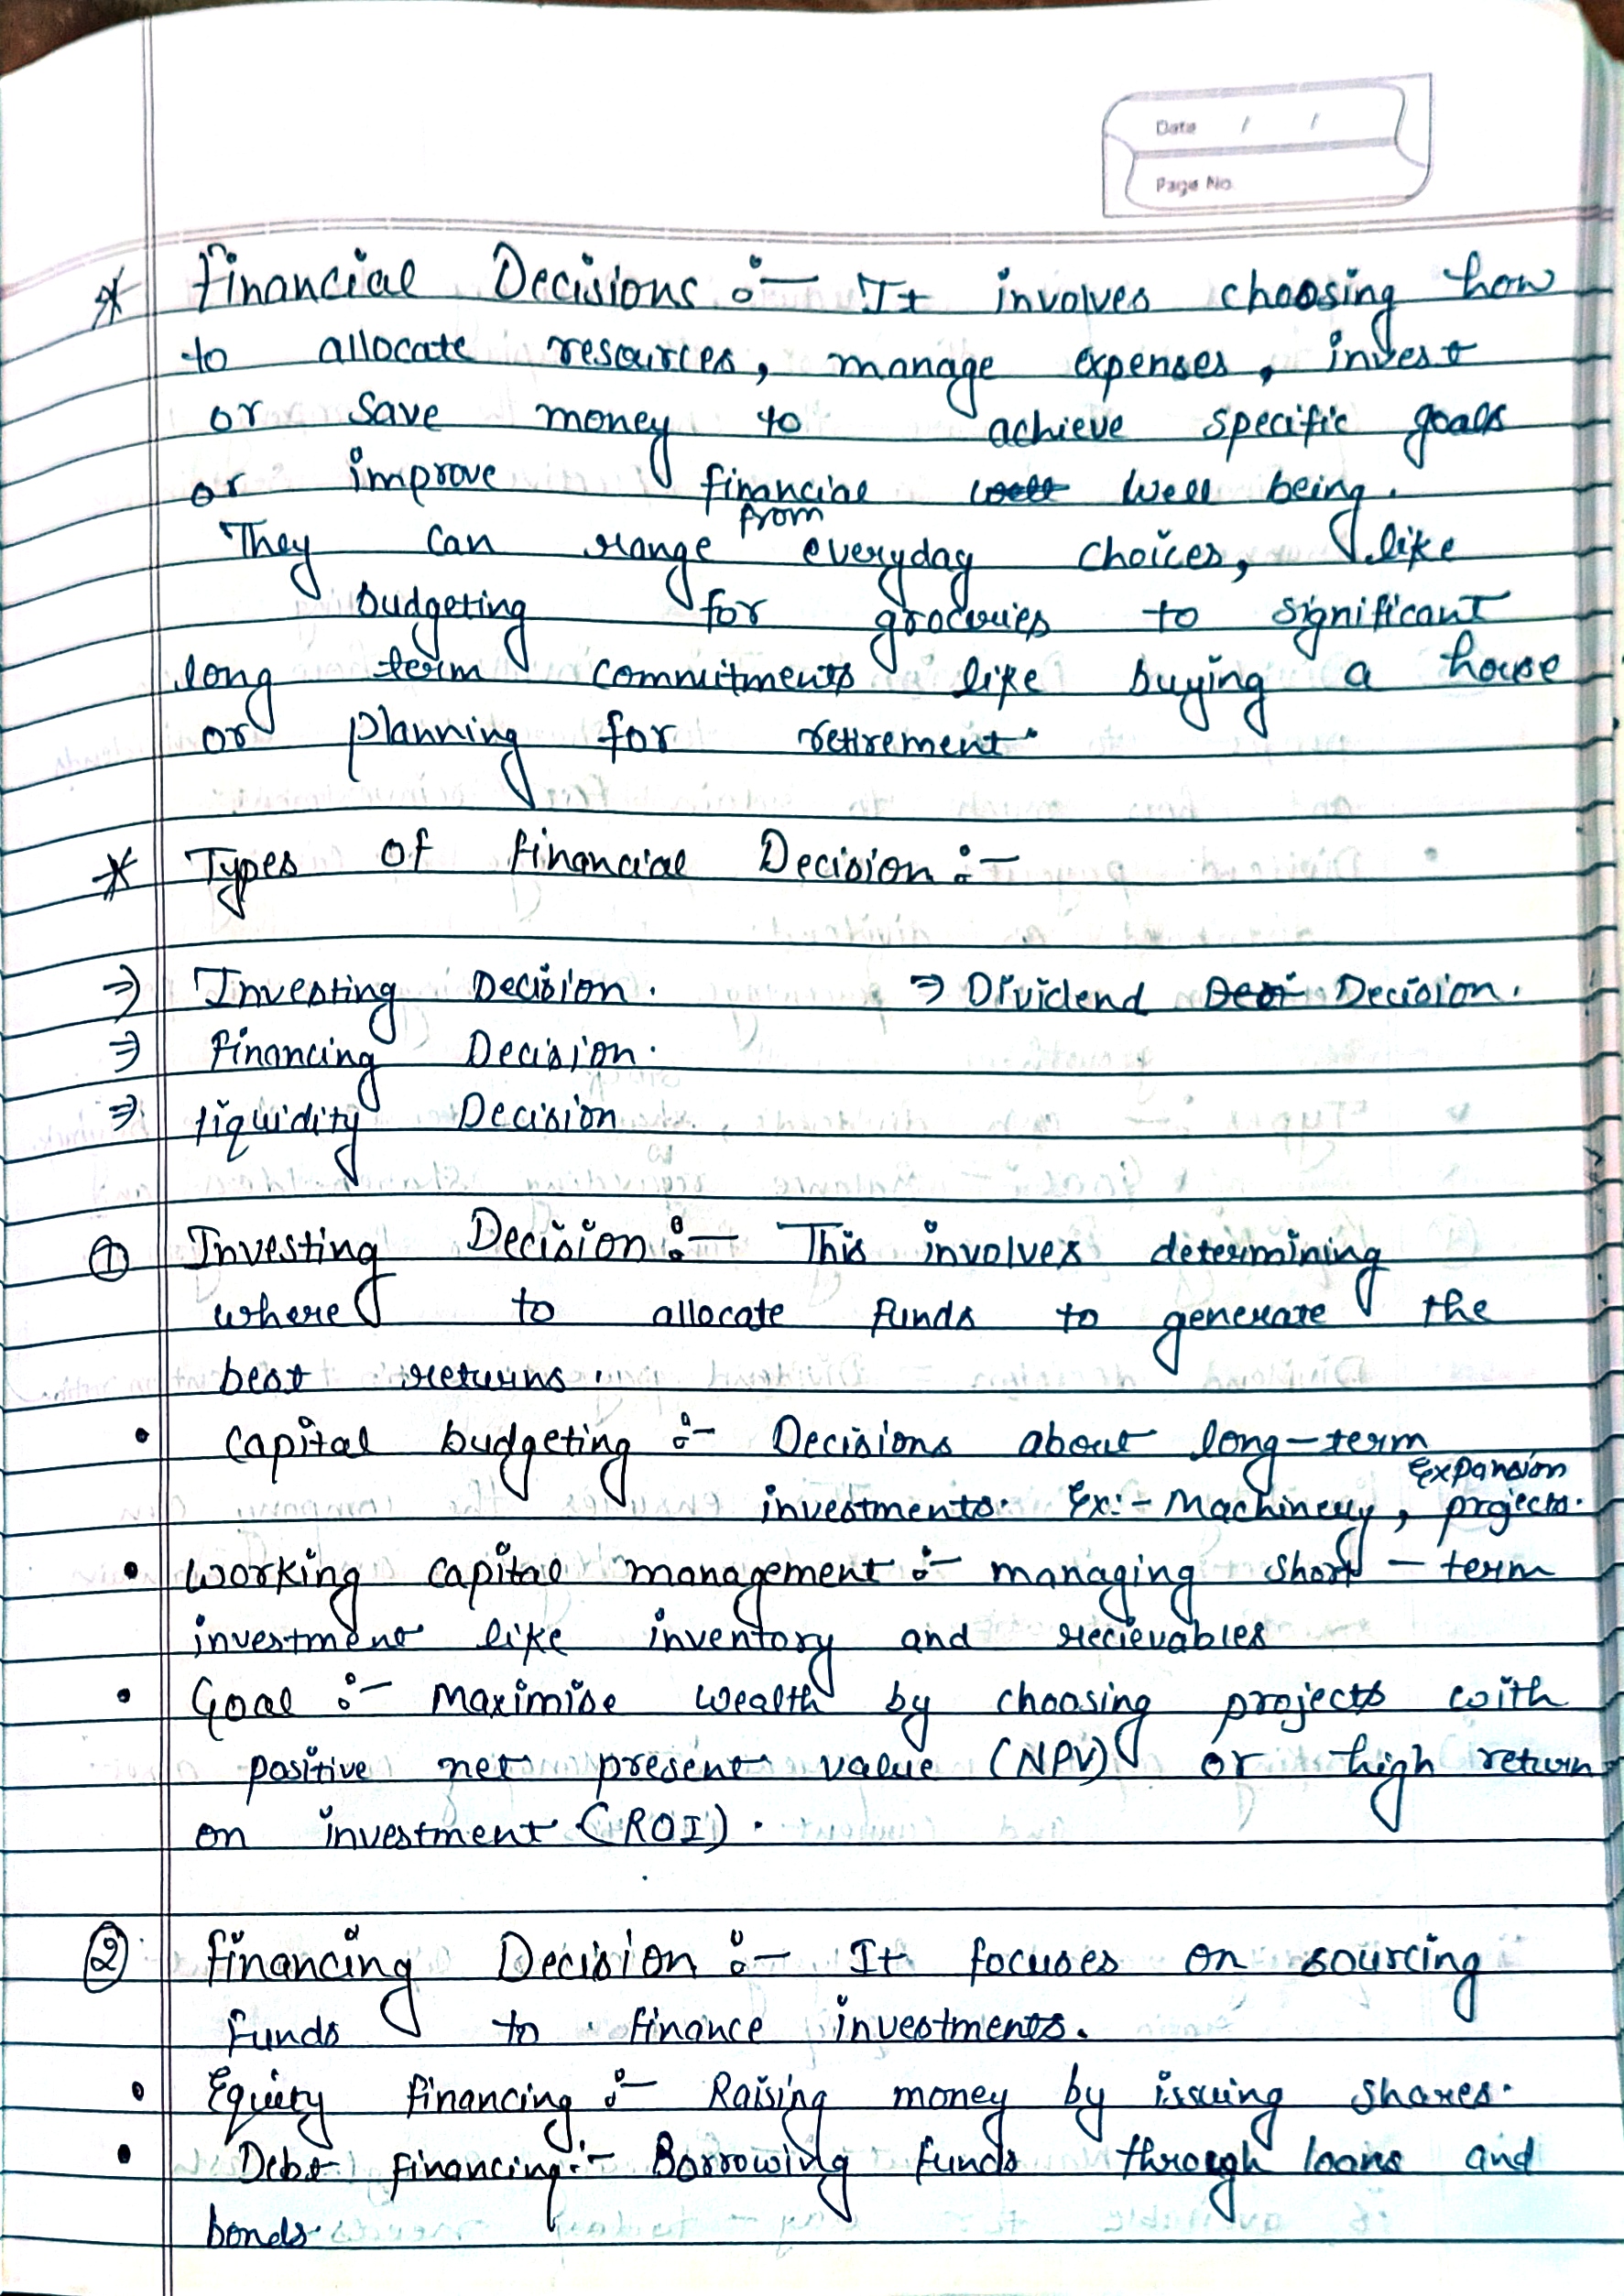 Date / /
Page No.
* Financial Decisions :- It involves choosing how
to allocate resources, manage expenses, invest
or save money to achieve specific goals
or improve financial well well being.
They can range from everyday choices, like
budgeting for groceries to significant
long term commitments like buying a house
or planning for retirement.
* Types of financial Decision :-
⇒ Investing Decision. ⇒ Dividend Deci Decision.
⇒ financing Decision.
⇒ liquidity Decision
① Investing Decision :- This involves determining
where to allocate funds to generate the
best returns.
• Capital budgeting :- Decisions about long-term
investments. Ex:- Machinery, expansion projects.
• working capital management :- managing short-term
investment like inventory and recievables
• Goal :- Maximise wealth by choosing projects with
positive net present value (NPV) or high return
on investment (ROI).
② financing Decision :- It focuses on sourcing
funds to finance investments.
• Equity financing :- Raising money by issuing shares.
• Debt financing :- Borrowing funds through loans and
bonds.